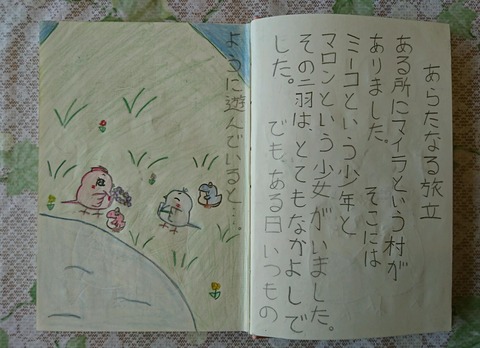 あらたなる旅立
ある所にマイラという村が
ありました。　そこには
ミーコという少年と
マロンという少女がいました。
その二羽は、とてもなかよしで
した。　でも、ある日いつもの
ように遊んでいると…。